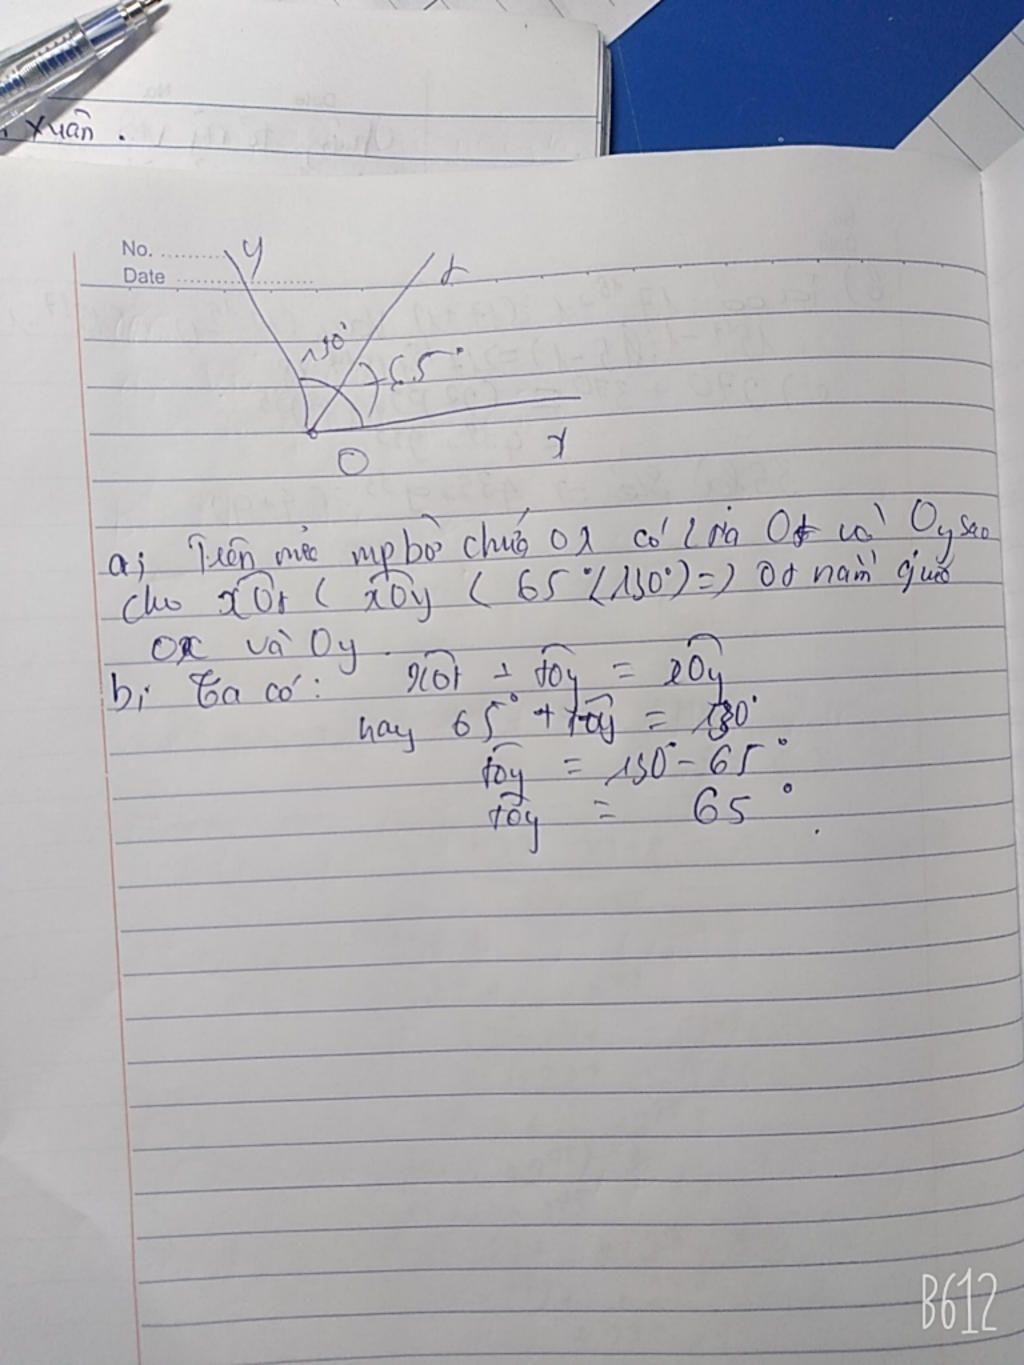 Xuân.
No. ............
Date ......................
y
t
130°
65°
O
x
a; Trên nửa mp bờ chứa Ox có 2 tia Ot và Oy sao
cho xOt < xOy ( 65° < 130° ) => Ot nằm giữa
Ox và Oy.
b; Ta có: xOt + tOy = xOy
hay 65° + tOy = 130°
tOy = 130° - 65°
tOy = 65°.
B612